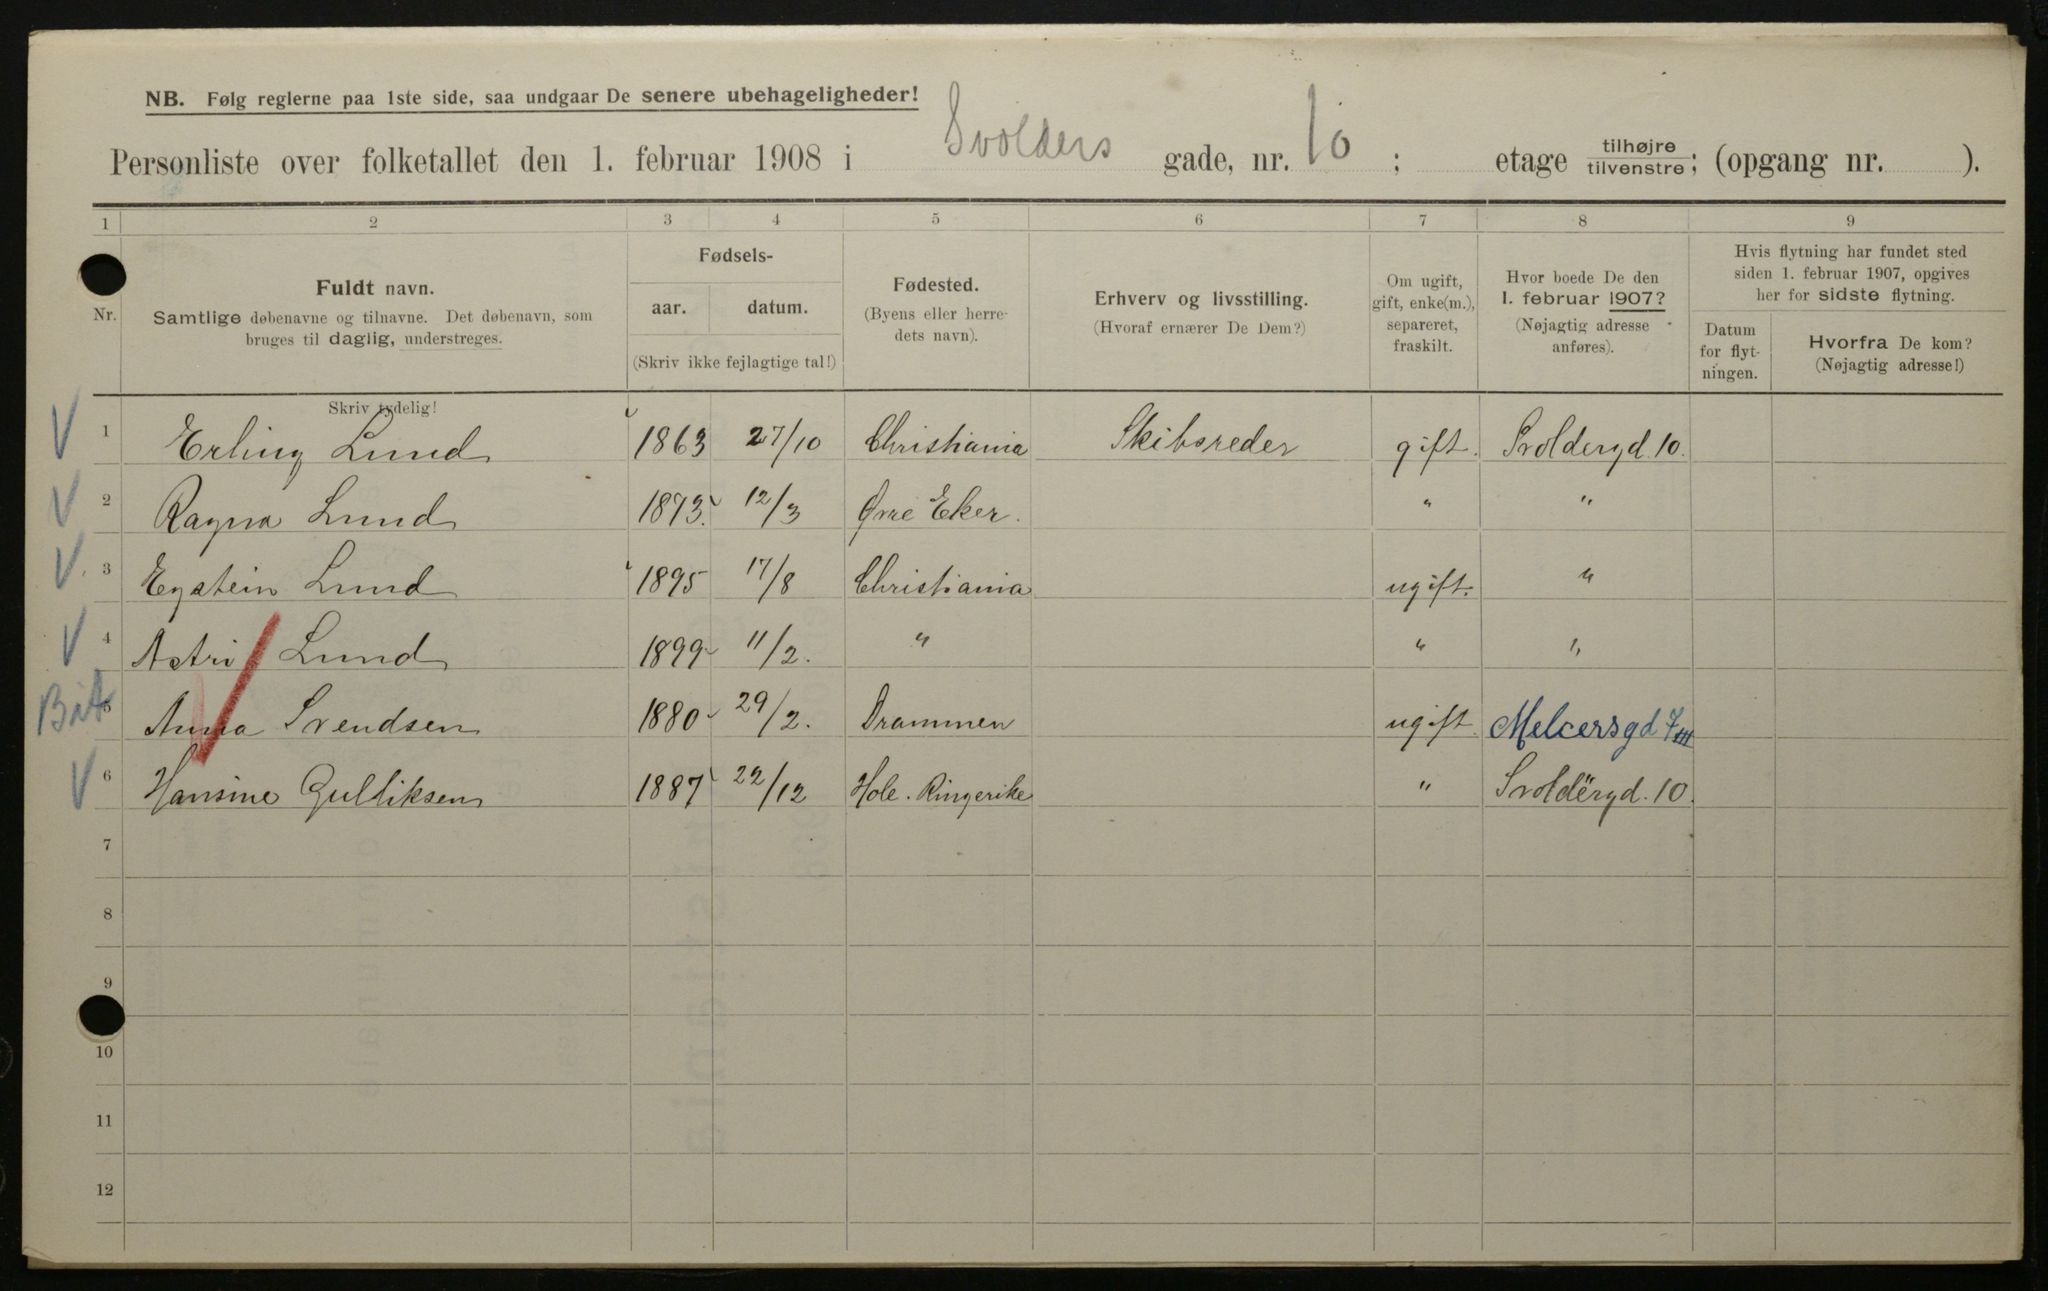 NB. Følg reglerne paa 1ste side, saa undgaar De senere ubehageligheder!
Personliste over folketallet den 1. februar 1908 i Svolders gade, nr. 10; etage tilhøjre tilvenstre; (opgang nr. ).
1 2 3 4 5 6 7 8 9
Nr.
Fuldt navn.
Samtlige døbenavne og tilnavne. Det døbenavn, som
bruges til daglig, understreges.
Skriv tydelig!
Fødsels-
aar. datum.
(Skriv ikke fejlagtige tal!)
Fødested.
(Byens eller herre-
dets navn).
Erhverv og livsstilling.
(Hvoraf ernærer De Dem?)
Om ugift,
gift, enke(m.),
separeret,
fraskilt.
Hvor boede De den
1. februar 1907?
(Nøjagtig adresse
anføres).
Hvis flytning har fundet sted
siden 1. februar 1907, opgives
her for sidste flytning.
Datum
for flyt-
ningen.
Hvorfra De kom?
(Nøjagtig adresse!)
V 1 Erling Lund 1863 27/10 Christiania Skibsreder gift. Svoldergd. 10.
V 2 Ragna Lund 1873. 12/3 Øvre Eker. " "
V. 3 Eystein Lund 1895 17/8 Christiania ugift. "
V 4 Astri Lund 1899 11/2. " " "
5 Anna Svendsen 1880 29/2. Drammen ugift Melcersgd 7 III
V 6 Hansine Gulliksen 1887 22/12 Hole. Ringerike " Svoldergd. 10.
7
8
9
10
11
12